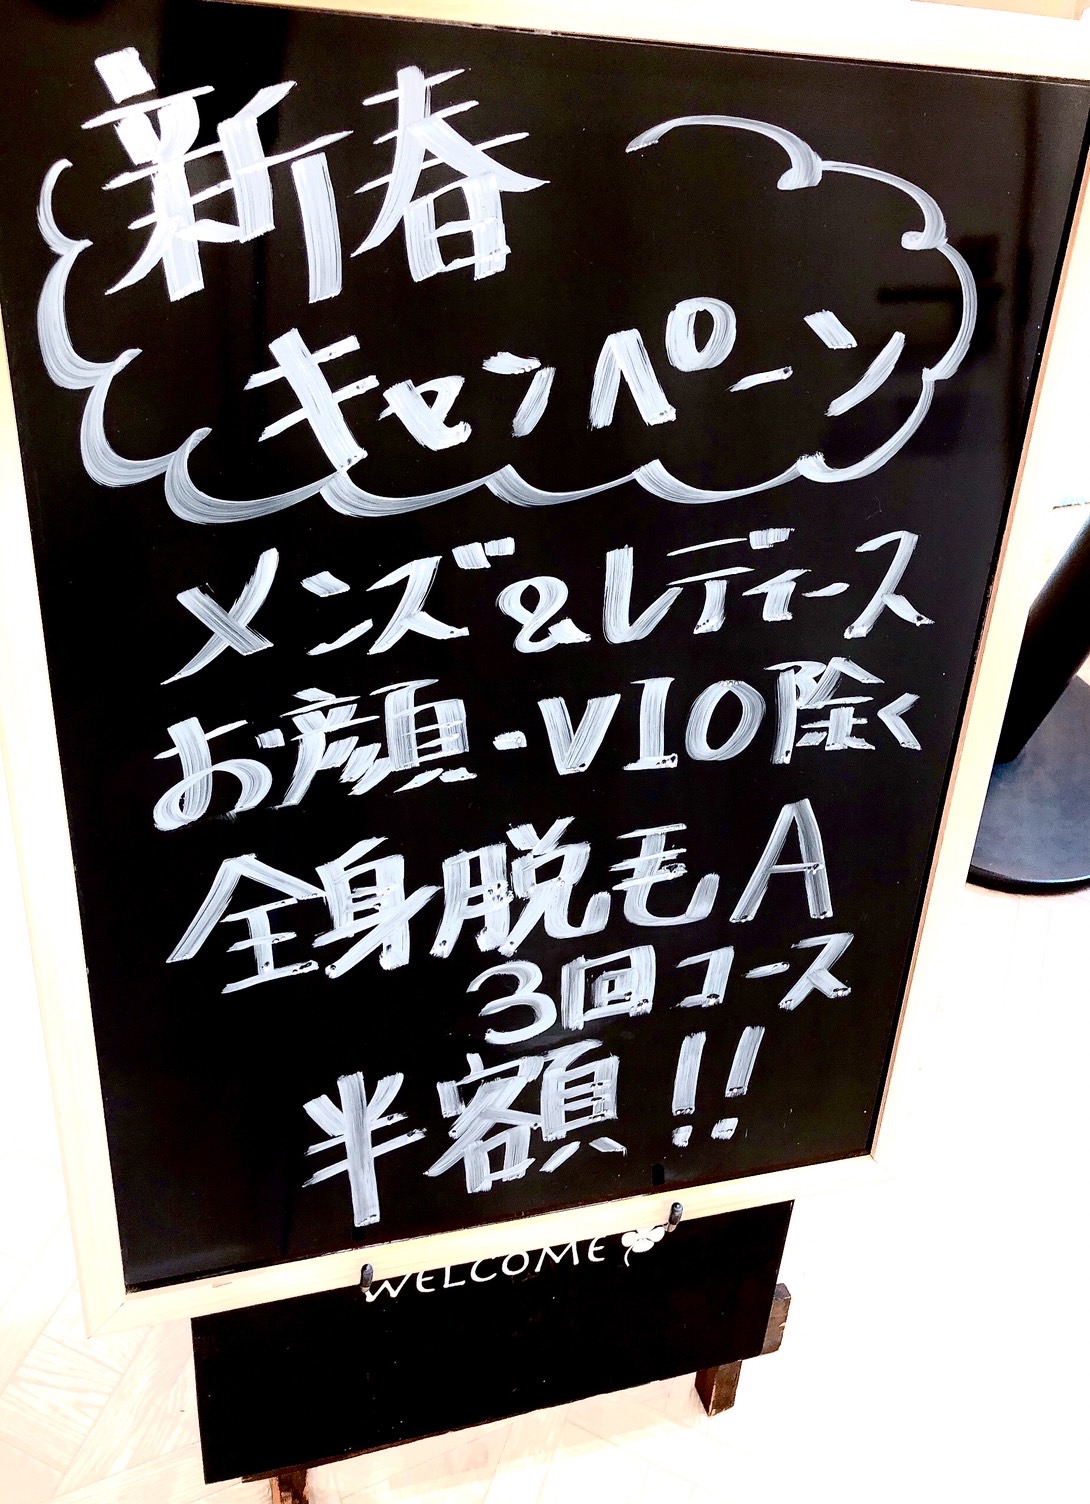 新春
キャンペーン
メンズ&レディース
お顔・VIO除く
全身脱毛A
3回コース
半額!!
WELCOME